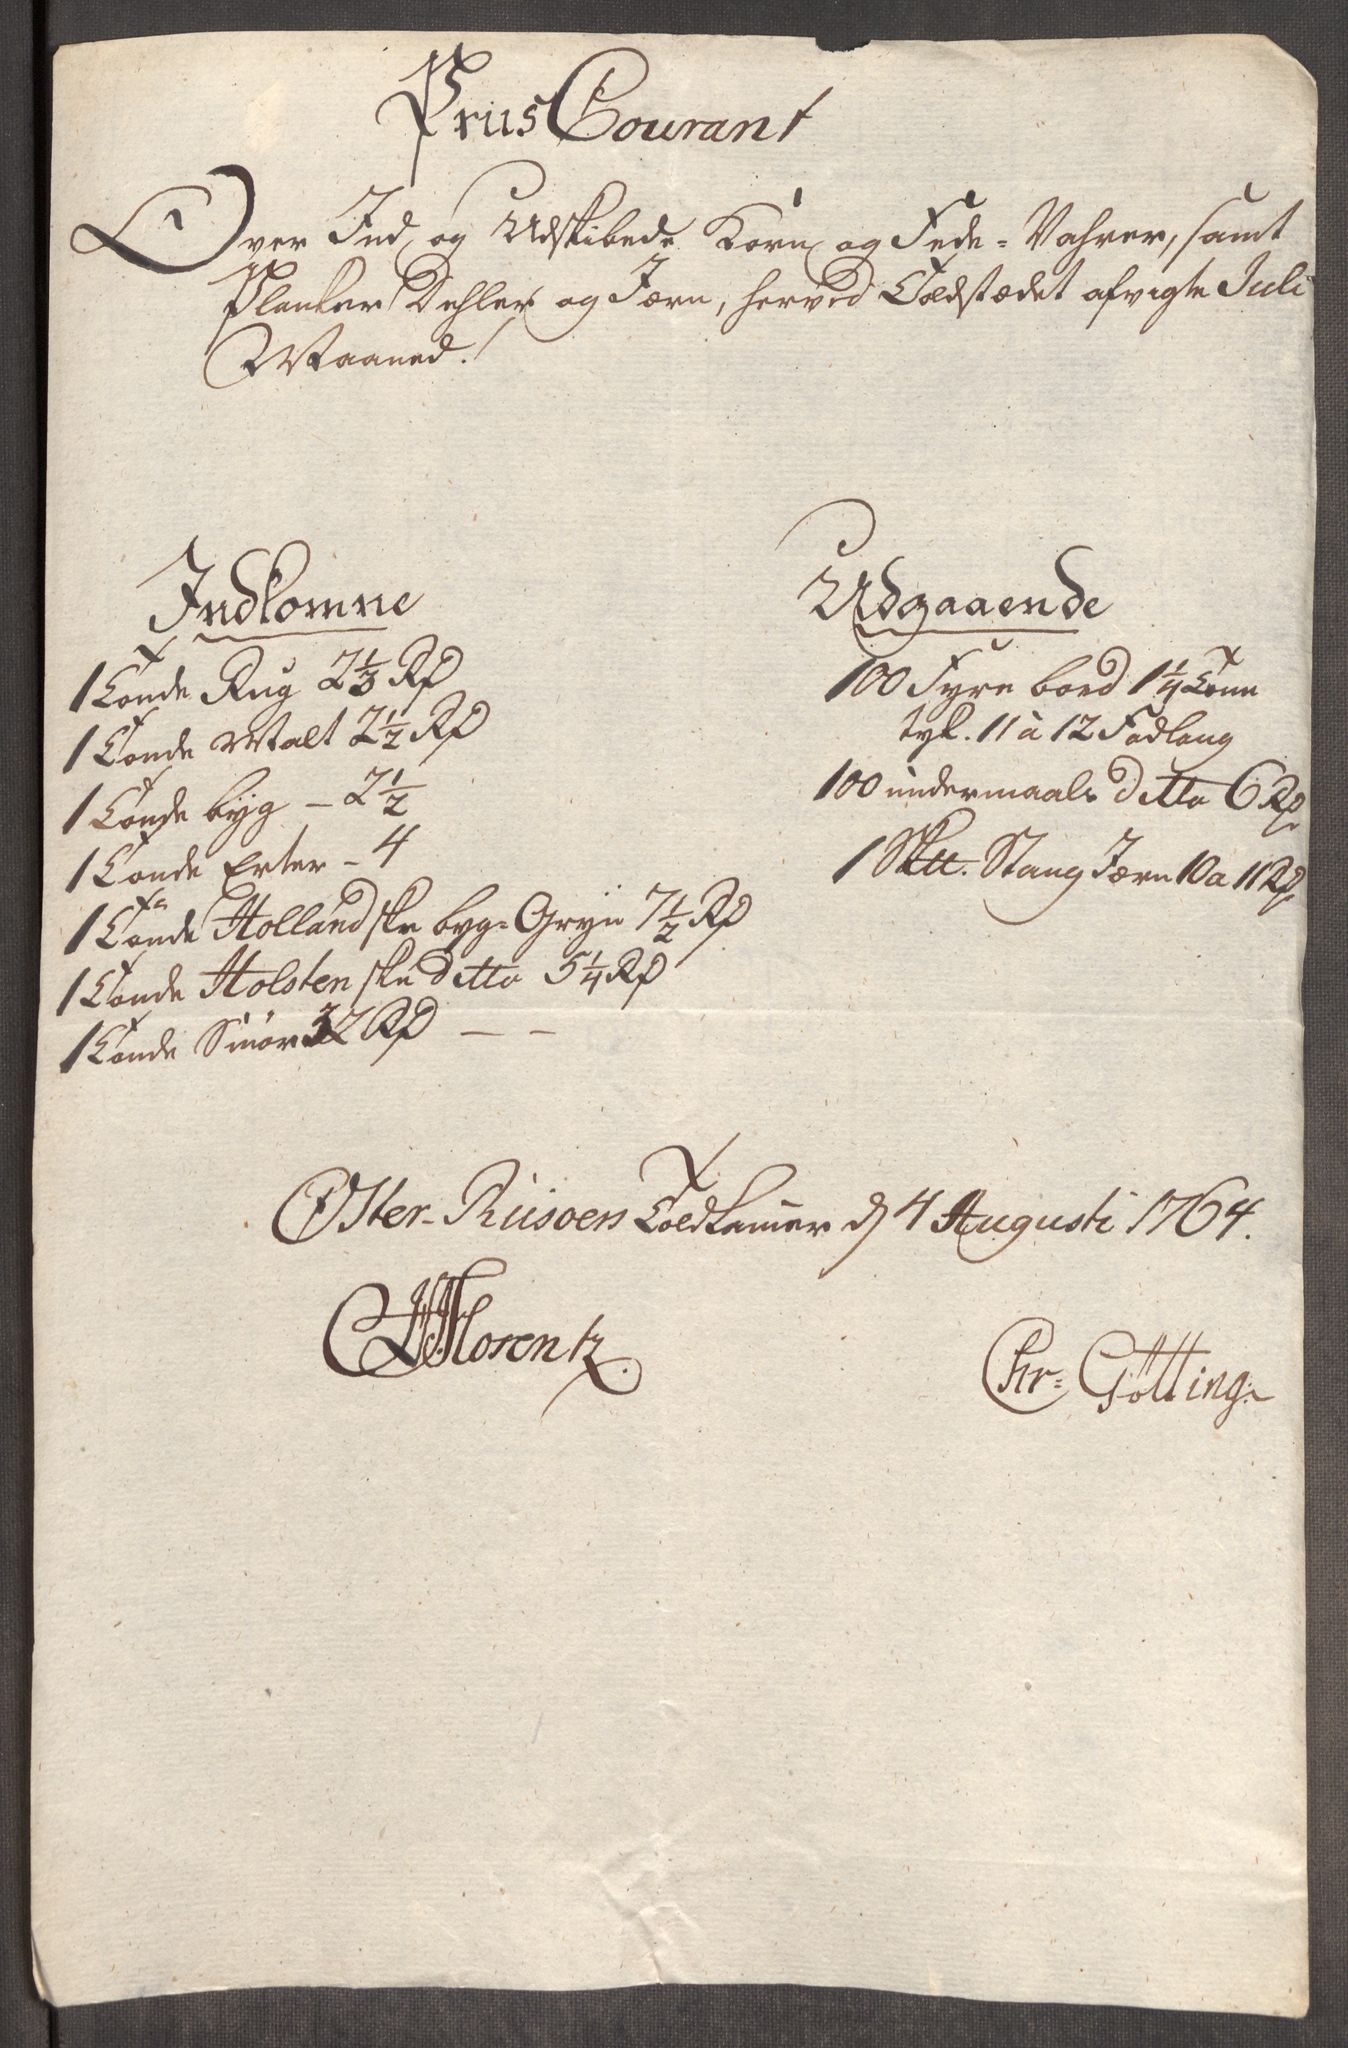 Priis Courant
Over Ind og Udskibede Korn og Fede-Vahrer, samt
Planker Dehler og Jærn, herved Toldstædet afvigte Juli
Maaned.
Indkomne
1 Tønde Rug 2 1/3 Rd
1 Tønde Malt 2 1/2 Rd
1 Tønde byg - 2 1/2
1 Tønde Erter - 4
1 Tønde Hollandske byg-Gryn 7 1/2 Rd
1 Tønde Holstenske ditto 5 1/4 Rd
1 Tønde Smør 32 Rd - -
Udgaaende
100 Fyre bord 1 1/4 Tom
tyk. 11 a 12 Fod lang
100 undermaals ditto 6 Rd
1 Sktt. Stang Jærn 10 a 11 Rd
Oster-Riisoers Toldkamer d 4 Augusti 1764.
Florentz.
Chr= Götting